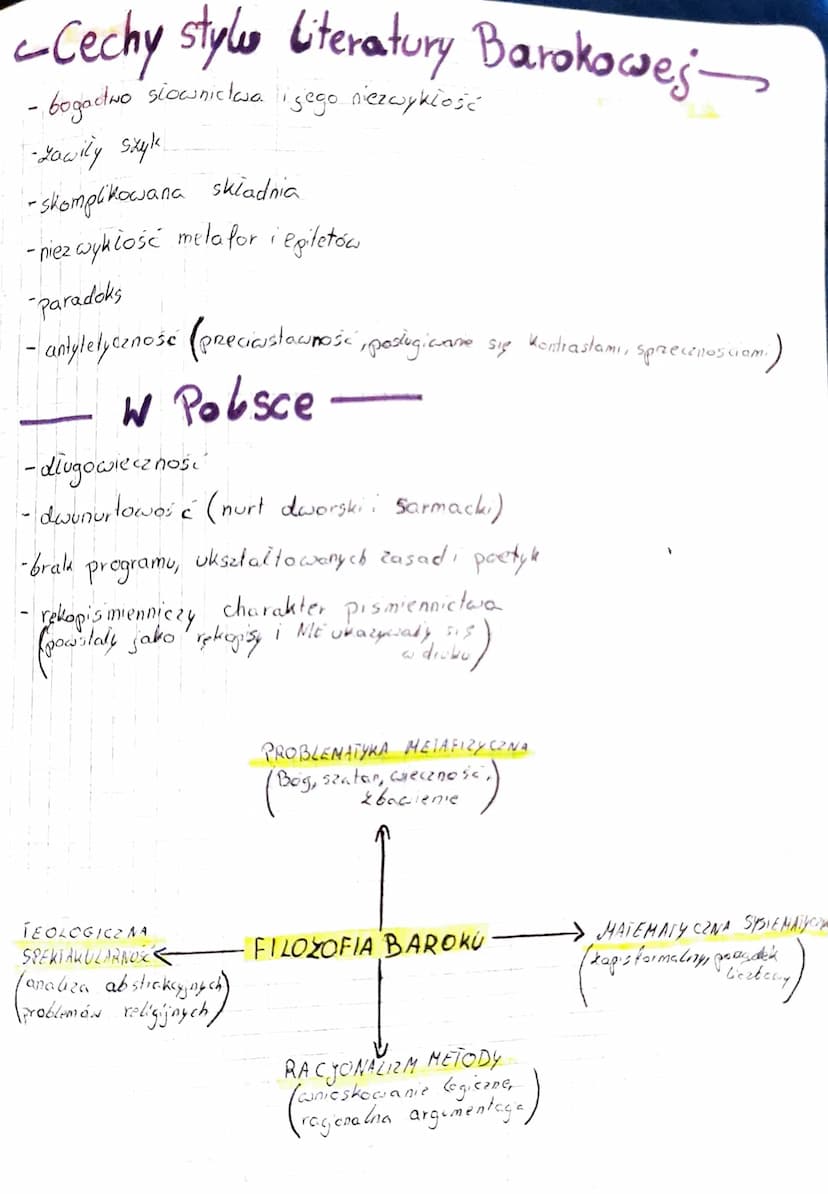 Cechy stylu literatury Barokowej
- bogactwo słownictwa i jego niezwykłość
- zawiły szyk
- skomplikowana składnia
- niezwykłość metafor i epitetów
- paradoks
- antytetyczność (preciwstawność, posługiwane się kontrastami, sprzecznościami)
W Polsce
- długowieczność
- dwunurtowość (nurt dworski i sarmacki)
- brak programu, ukształtowanych zasad i poetyk
- rękopiśmienniczy charakter piśmiennictwa
(powstały jako rękopisy i nie ukazywały się
w druku)
PROBLEMATYKA METAFIZYCZNA
(Bóg, szatan, wieczność,
zbawienie)
TEOLOGICZNA
SPEKTAKULARNOŚĆ
(analiza abstrakcyjnych
problemów religijnych)
FILOZOFIA BAROKU
MATEMATYCZNA
(zapis formalny, porządek
liczbowy)
RACJONALIZM METODY
(wnioskowanie logiczne,
racjonalna argumentacja)